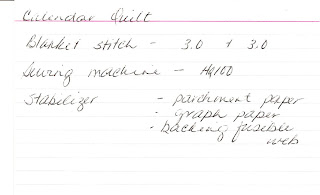 Calendar Quilt
Blanket stitch - 3.0 + 3.0
Sewing machine - HQ100
Stabilizer - parchment paper
- graph paper
- backing fusible
web